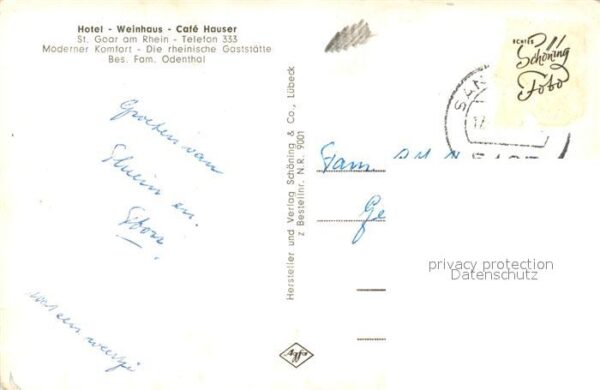 Hotel - Weinhaus - Café Hauser
St. Goar am Rhein - Telefon 333
Moderner Komfort - Die rheinische Gaststätte
Bes. Fam. Odenthal
Groeten van
en
Hersteller und Verlag Schöning & Co., Lübeck
z Bestellnr. N.R. 9001
ECHTES
Schöning
Foto
SAN
Fam.
Ge
privacy protection
Datenschutz
Agfa